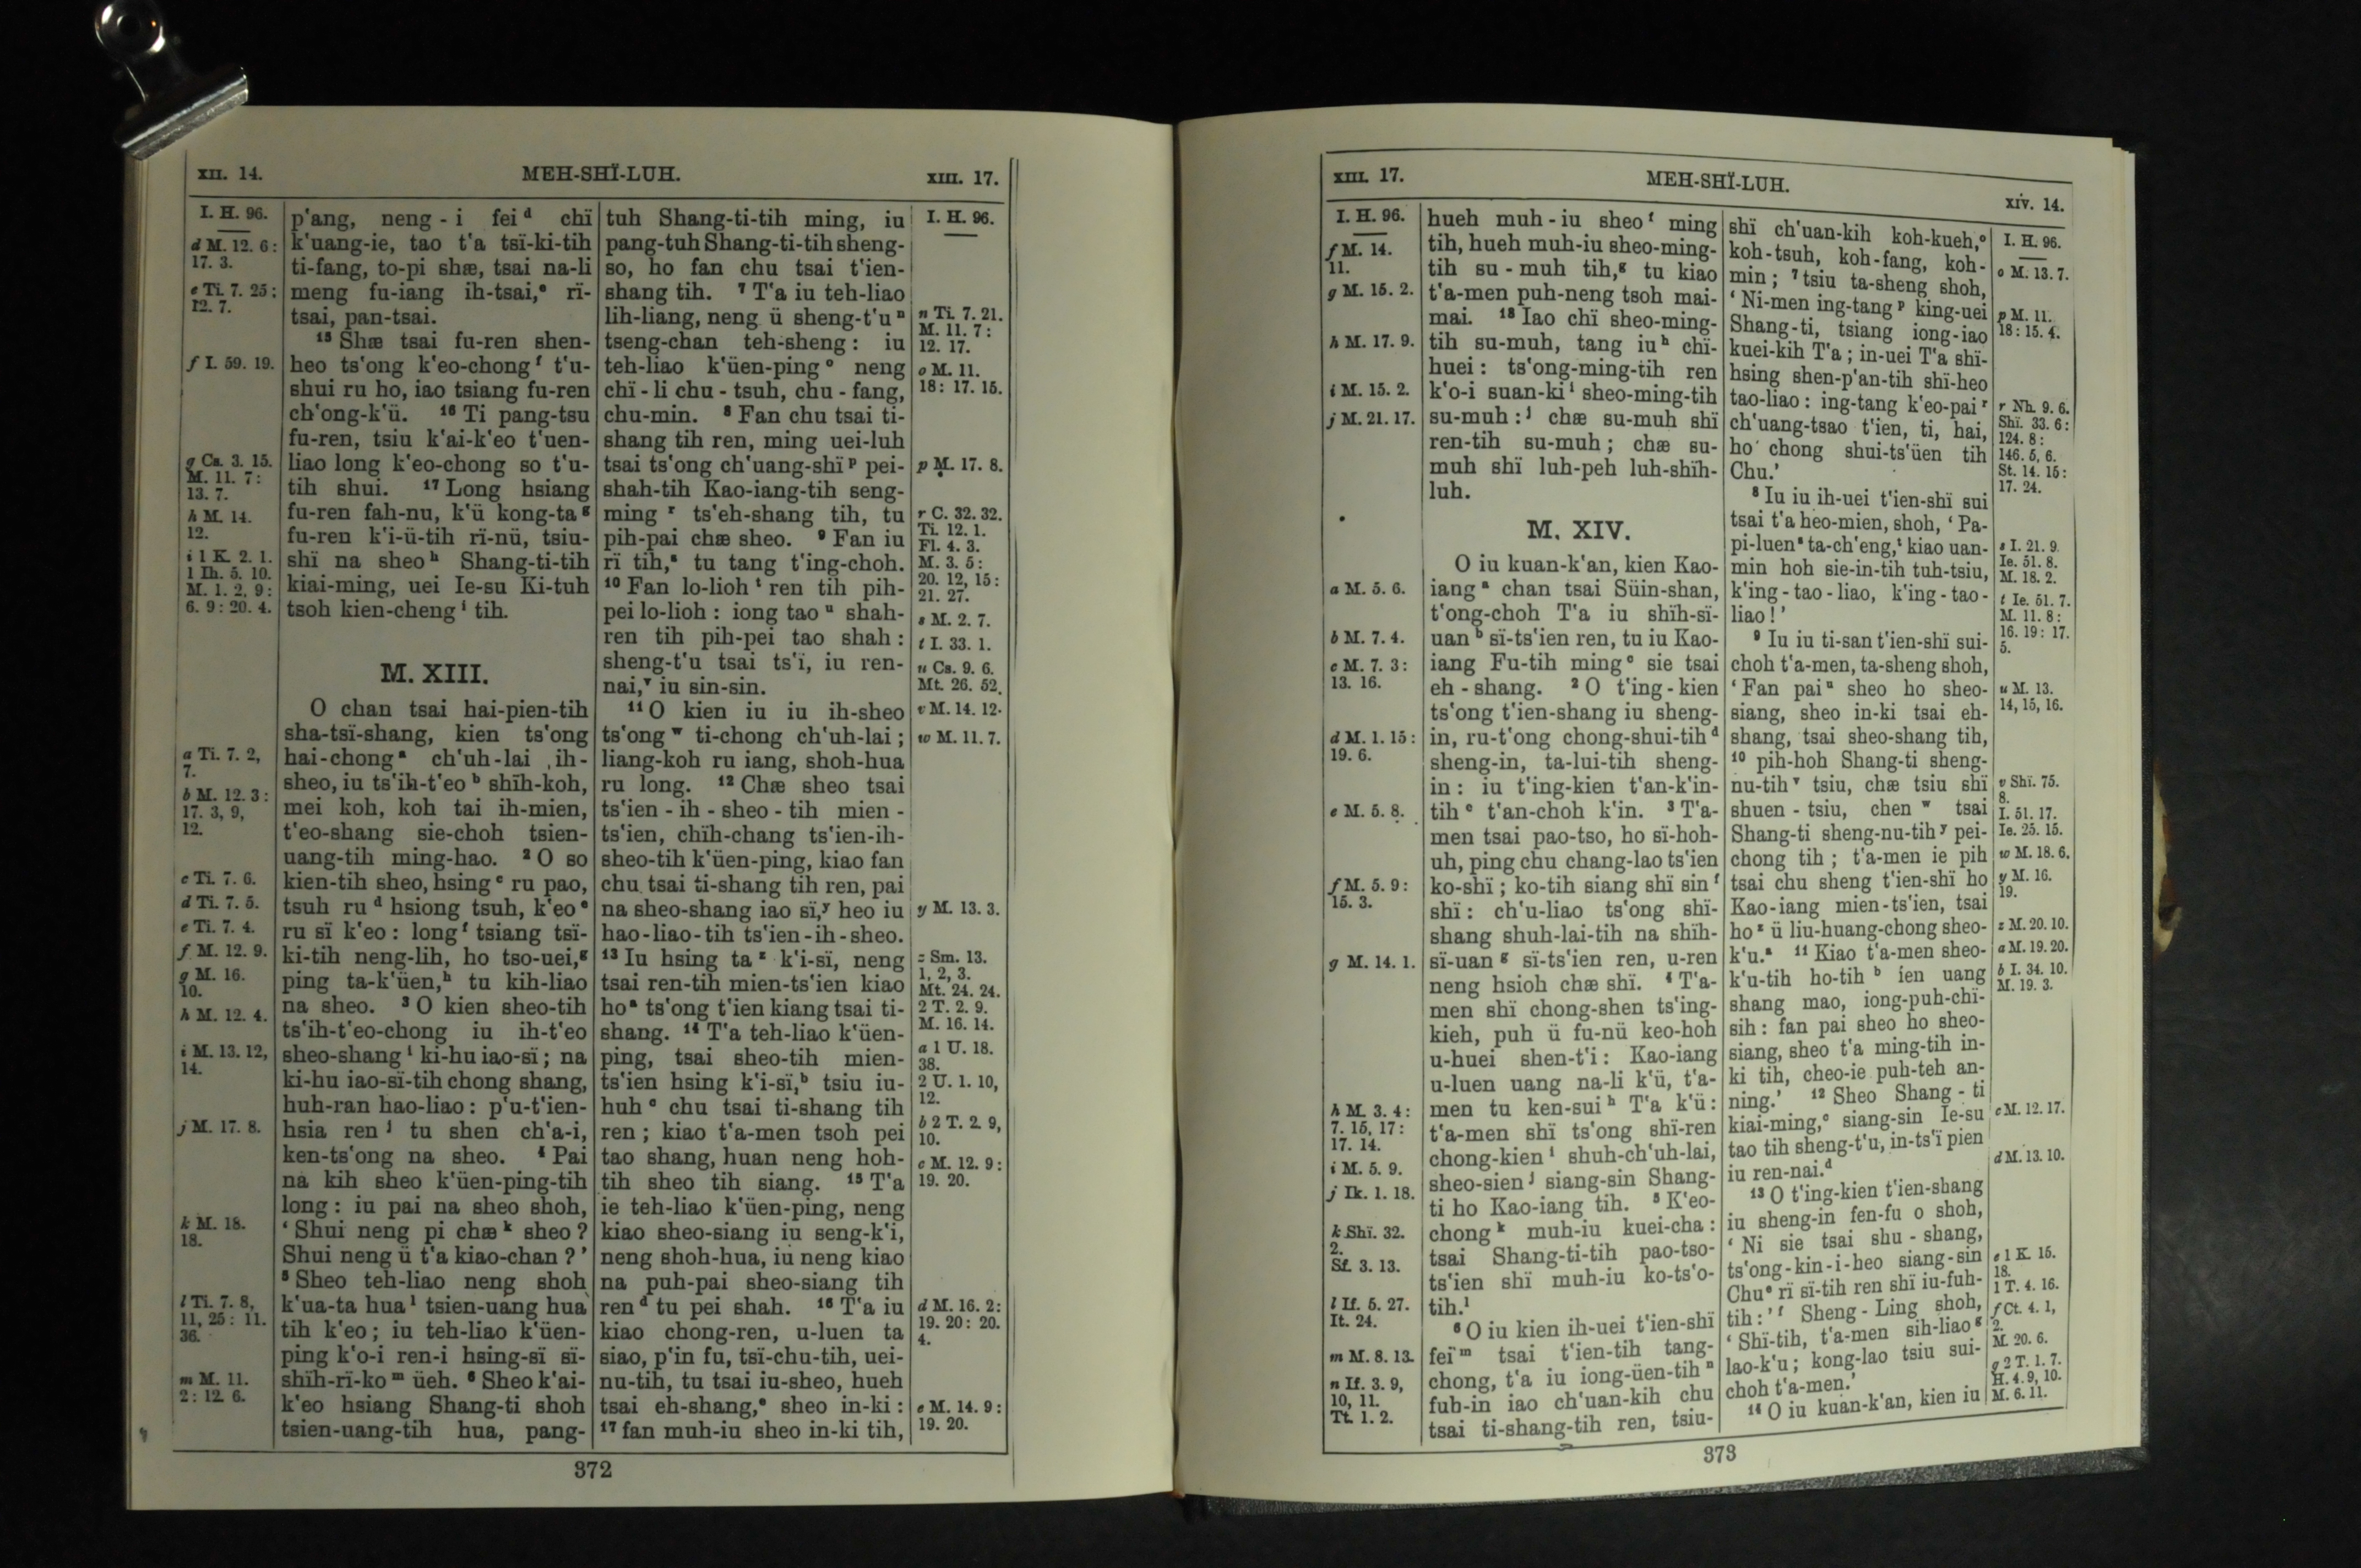 XII. 14. MEH-SHÏ-LUH. XIII. 17.
I. H. 96.
d M. 12. 6:
17. 3.
e Ti. 7. 25:
12. 7.
f I. 59. 19.
g Cs. 3. 15.
M. 11. 7:
13. 7.
h M. 14.
12.
i 1 K. 2. 1.
1 Ih. 5. 10.
M. 1. 2, 9:
6. 9: 20. 4.
a Ti. 7. 2,
7.
b M. 12. 3:
17. 3, 9,
12.
c Ti. 7. 6.
d Ti. 7. 5.
e Ti. 7. 4.
f M. 12. 9.
g M. 16.
10.
h M. 12. 4.
i M. 13. 12,
14.
j M. 17. 8.
k M. 18.
18.
l Ti. 7. 8,
11, 25: 11.
36.
m M. 11.
2: 12. 6.
p'ang, neng-i fei d chï
k'uang-ie, tao t'a tsï-ki-tih
ti-fang, to-pi shæ, tsai na-li
meng fu-iang ih-tsai, e rï-
tsai, pan-tsai.
15 Shæ tsai fu-ren shen-
heo ts'ong k'eo-chong f t'u-
shui ru ho, iao tsiang fu-ren
ch'ong-k'ü. 16 Ti pang-tsu
fu-ren, tsiu k'ai-k'eo t'uen-
liao long k'eo-chong so t'u-
tih shui. 17 Long hsiang
fu-ren fah-nu, k'ü kong-ta g
fu-ren k'i-ü-tih rï-nü, tsiu-
shï na sheo h Shang-ti-tih
kiai-ming, uei Ie-su Ki-tuh
tsoh kien-cheng i tih.
M. XIII.
O chan tsai hai-pien-tih
sha-tsï-shang, kien ts'ong
hai-chong a ch'uh-lai ih-
sheo, iu ts'ih-t'eo b shïh-koh,
mei koh, koh tai ih-mien,
t'eo-shang sie-choh tsien-
uang-tih ming-hao. 2 O so
kien-tih sheo, hsing c ru pao,
tsuh ru d hsiong tsuh, k'eo e
ru sï k'eo: long f tsiang tsï-
ki-tih neng-lih, ho tso-uei, g
ping ta-k'üen, h tu kih-liao
na sheo. 3 O kien sheo-tih
ts'ih-t'eo-chong iu ih-t'eo
sheo-shang i ki-hu iao-sï; na
ki-hu iao-sï-tih chong shang,
huh-ran hao-liao: p'u-t'ien-
hsia ren j tu shen ch'a-i,
ken-ts'ong na sheo. 4 Pai
na kih sheo k'üen-ping-tih
long: iu pai na sheo shoh,
‘Shui neng pi chæ k sheo?
Shui neng ü t'a kiao-chan?’
5 Sheo teh-liao neng shoh
k'ua-ta hua l tsien-uang hua
tih k'eo; iu teh-liao k'üen-
ping k'o-i ren-i hsing-sï sï-
shïh-rï-ko m üeh. 6 Sheo k'ai-
k'eo hsiang Shang-ti shoh
tsien-uang-tih hua, pang-
tuh Shang-ti-tih ming, iu
pang-tuh Shang-ti-tih sheng-
so, ho fan chu tsai t'ien-
shang tih. 7 T'a iu teh-liao
lih-liang, neng ü sheng-t'u n
tseng-chan teh-sheng: iu
teh-liao k'üen-ping o neng
chï-li chu-tsuh, chu-fang,
chu-min. 8 Fan chu tsai ti-
shang tih ren, ming uei-luh
tsai ts'ong ch'uang-shï p pei-
shah-tih Kao-iang-tih seng-
ming r ts'eh-shang tih, tu
pih-pai chæ sheo. 9 Fan iu
rï tih, s tu tang t'ing-choh.
10 Fan lo-lioh t ren tih pih-
pei lo-lioh: iong tao u shah-
ren tih pih-pei tao shah:
sheng-t'u tsai ts'ï, iu ren-
nai, v iu sin-sin.
11 O kien iu iu ih-sheo
ts'ong w ti-chong ch'uh-lai;
liang-koh ru iang, shoh-hua
ru long. 12 Chæ sheo tsai
ts'ien-ih-sheo-tih mien-
ts'ien, chïh-chang ts'ien-ih-
sheo-tih k'üen-ping, kiao fan
chu tsai ti-shang tih ren, pai
na sheo-shang iao sï, y heo iu
hao-liao-tih ts'ien-ih-sheo.
13 Iu hsing ta z k'i-sï, neng
tsai ren-tih mien-ts'ien kiao
ho a ts'ong t'ien kiang tsai ti-
shang. 14 T'a teh-liao k'üen-
ping, tsai sheo-tih mien-
ts'ien hsing k'i-sï, b tsiu iu-
huh c chu tsai ti-shang tih
ren; kiao t'a-men tsoh pei
tao shang, huan neng hoh-
tih sheo tih siang. 15 T'a
ie teh-liao k'üen-ping, neng
kiao sheo-siang iu seng-k'i,
neng shoh-hua, iu neng kiao
na puh-pai sheo-siang tih
ren d tu pei shah. 16 T'a iu
kiao chong-ren, u-luen ta
siao, p'in fu, tsï-chu-tih, uei-
nu-tih, tu tsai iu-sheo, hueh
tsai eh-shang, e sheo in-ki:
17 fan muh-iu sheo in-ki tih,
I. H. 96.
n Ti. 7. 21.
M. 11. 7:
12. 17.
o M. 11.
18: 17. 15.
p M. 17. 8.
r C. 32. 32.
Ti. 12. 1.
Fl. 4. 3.
M. 3. 5:
20. 12, 15:
21. 27.
s M. 2. 7.
t I. 33. 1.
u Cs. 9. 6.
Mt. 26. 52.
v M. 14. 12.
w M. 11. 7.
y M. 13. 3.
z Sm. 13.
1, 2, 3.
Mt. 24. 24.
2 T. 2. 9.
M. 16. 14.
a 1 U. 18.
38.
2 U. 1. 10,
12.
b 2 T. 2. 9,
10.
c M. 12. 9:
19. 20.
d M. 16. 2:
19. 20: 20.
4.
e M. 14. 9:
19. 20.
372
XIII. 17. MEH-SHÏ-LUH. XIV. 14.
I. H. 96.
f M. 14.
11.
g M. 15. 2.
h M. 17. 9.
i M. 15. 2.
j M. 21. 17.
a M. 5. 6.
b M. 7. 4.
c M. 7. 3:
13. 16.
d M. 1. 15:
19. 6.
e M. 5. 8.
f M. 5. 9:
15. 3.
g M. 14. 1.
h M. 3. 4:
7. 15, 17:
17. 14.
i M. 5. 9.
j Ik. 1. 18.
k Shï. 32.
2.
Sf. 3. 13.
l If. 5. 27.
It. 24.
m M. 8. 13.
n If. 3. 9,
10, 11.
Tt. 1. 2.
hueh muh-iu sheo f ming
tih, hueh muh-iu sheo-ming-
tih su-muh tih, g tu kiao
t'a-men puh-neng tsoh mai-
mai. 18 Iao chï sheo-ming-
tih su-muh, tang iu h chï-
huei: ts'ong-ming-tih ren
k'o-i suan-ki i sheo-ming-tih
su-muh: j chæ su-muh shï
ren-tih su-muh; chæ su-
muh shï luh-peh luh-shïh-
luh.
M. XIV.
O iu kuan-k'an, kien Kao-
iang a chan tsai Süin-shan,
t'ong-choh T'a iu shïh-sï-
uan b sï-ts'ien ren, tu iu Kao-
iang Fu-tih ming c sie tsai
eh-shang. 2 O t'ing-kien
ts'ong t'ien-shang iu sheng-
in, ru-t'ong chong-shui-tih d
sheng-in, ta-lui-tih sheng-
in: iu t'ing-kien t'an-k'in-
tih e t'an-choh k'in. 3 T'a-
men tsai pao-tso, ho sï-hoh-
uh, ping chu chang-lao ts'ien
ko-shï; ko-tih siang shï sin f
shï: ch'u-liao ts'ong shï-
shang shuh-lai-tih na shïh-
sï-uan g sï-ts'ien ren, u-ren
neng hsioh chæ shï. 4 T'a-
men shï chong-shen ts'ing-
kieh, puh ü fu-nü keo-hoh
u-huei shen-t'i: Kao-iang
u-luen uang na-li k'ü, t'a-
men tu ken-sui h T'a k'ü:
t'a-men shï ts'ong shï-ren
chong-kien i shuh-ch'uh-lai,
sheo-sien j siang-sin Shang-
ti ho Kao-iang tih. 5 K'eo-
chong k muh-iu kuei-cha:
tsai Shang-ti-tih pao-tso-
ts'ien shï muh-iu ko-ts'o-
tih. l
6 O iu kien ih-uei t'ien-shï
fei m tsai t'ien-tih tang-
chong, t'a iu iong-üen-tih n
fuh-in iao ch'uan-kih chu
tsai ti-shang-tih ren, tsiu-
shï ch'uan-kih koh-kueh, o
koh-tsuh, koh-fang, koh-
min; 7 tsiu ta-sheng shoh,
‘Ni-men ing-tang p king-uei
Shang-ti, tsiang iong-iao
kuei-kih T'a; in-uei T'a shï-
hsing shen-p'an-tih shï-heo
tao-liao: ing-tang k'eo-pai r
ch'uang-tsao t'ien, ti, hai,
ho chong shui-ts'üen tih
Chu.’
8 Iu iu ih-uei t'ien-shï sui
tsai t'a heo-mien, shoh, ‘Pa-
pi-luen s ta-ch'eng, t kiao uan-
min hoh sie-in-tih tuh-tsiu,
k'ing-tao-liao, k'ing-tao-
liao!’
9 Iu iu ti-san t'ien-shï sui-
choh t'a-men, ta-sheng shoh,
‘Fan pai u sheo ho sheo-
siang, sheo in-ki tsai eh-
shang, tsai sheo-shang tih,
10 pih-hoh Shang-ti sheng-
nu-tih v tsiu, chæ tsiu shï
shuen-tsiu, chen w tsai
Shang-ti sheng-nu-tih y pei-
chong tih; t'a-men ie pih
tsai chu sheng t'ien-shï ho
Kao-iang mien-ts'ien, tsai
ho z ü liu-huang-chong sheo-
k'u. a 11 Kiao t'a-men sheo-
k'u-tih ho-tih b ien uang
shang mao, iong-puh-chï-
sih: fan pai sheo ho sheo-
siang, sheo t'a ming-tih in-
ki tih, cheo-ie puh-teh an-
ning.’ 12 Sheo Shang-ti
kiai-ming, c siang-sin Ie-su
tao tih sheng-t'u, in-ts'ï pien
iu ren-nai. d
13 O t'ing-kien t'ien-shang
iu sheng-in fen-fu o shoh,
‘Ni sie tsai shu-shang,
ts'ong-kin-i-heo siang-sin
Chu e rï sï-tih ren shï iu-fuh-
tih:’ f Sheng-Ling shoh,
‘Shï-tih, t'a-men sih-liao g
lao-k'u; kong-lao tsiu sui-
choh t'a-men.’
14 O iu kuan-k'an, kien iu
I. H. 96.
o M. 13. 7.
p M. 11.
18: 15. 4.
r Nh. 9. 6.
Shï. 33. 6:
124. 8:
146. 5, 6.
St. 14. 15:
17. 24.
s I. 21. 9.
Ie. 51. 8.
M. 18. 2.
t Ie. 51. 7.
M. 11. 8:
16. 19: 17.
5.
u M. 13.
14, 15, 16.
v Shï. 75.
8.
I. 51. 17.
Ie. 25. 15.
w M. 18. 6.
y M. 16.
19.
z M. 20. 10.
a M. 19. 20.
b I. 34. 10.
M. 19. 3.
c M. 12. 17.
d M. 13. 10.
e 1 K. 15.
18.
1 T. 4. 16.
f Ct. 4. 1,
2.
M. 20. 6.
g 2 T. 1. 7.
H. 4. 9, 10.
M. 6. 11.
373